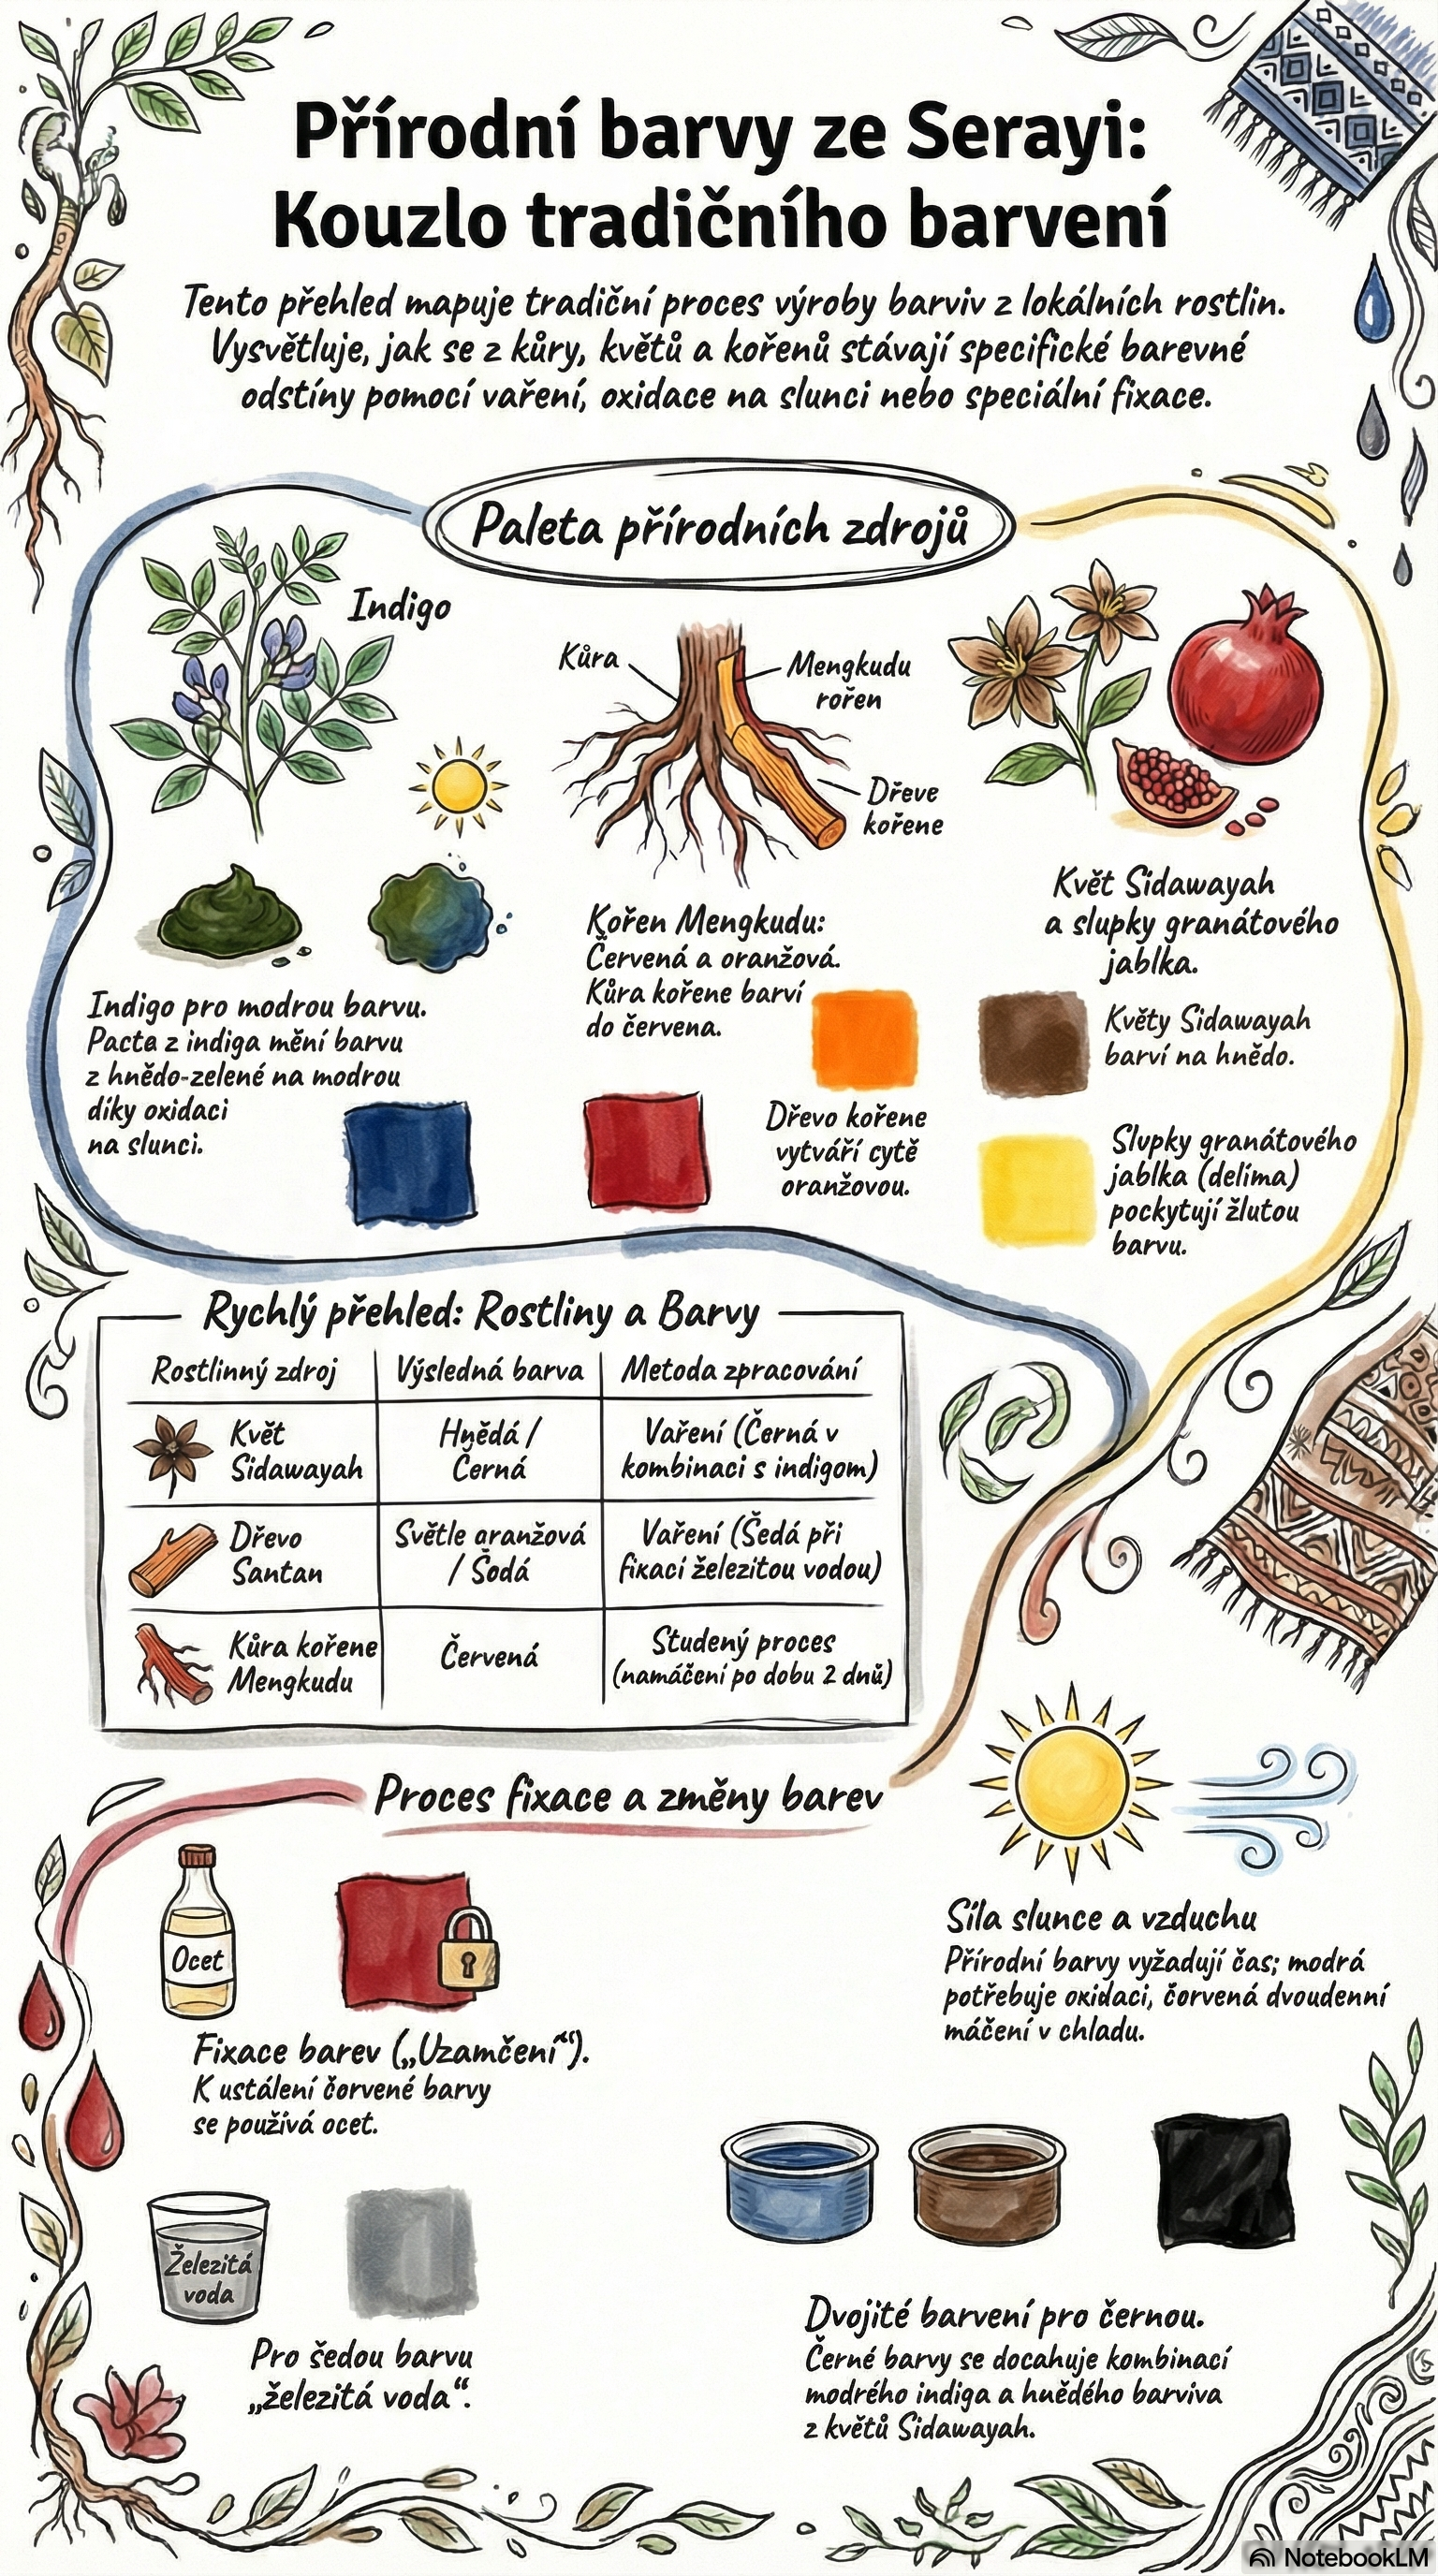 Přírodní barvy ze Serayi:
Kouzlo tradičního barvení
Tento přehled mapuje tradiční proces výroby barviv z lokálních rostlin.
Vysvětluje, jak se z kůry, květů a kořenů stávají specifické barevné
odstíny pomocí vaření, oxidace na slunci nebo speciální fixace.
Paleta přírodních zdrojů
Indigo
Indigo pro modrou barvu.
Pacta z indiga mění barvu
z hnědo-zelené na modrou
díky oxidaci
na slunci.
Kůra
Mengkudu
rořen
Dřeve
kořene
Kořen Mengkudu:
Červená a oranžová.
Kůra kořene barví
do červena.
Dřevo kořene
vytváří cytě
oranžovou.
Květ Sidawayah
a slupky granátového
jablka.
Květy Sidawayah
barví na hnědo.
Slupky granátového
jablka (delima)
pockytují žlutou
barvu.
Rychlý přehled: Rostliny a Barvy
Rostlinný zdroj
Výsledná barva
Metoda zpracování
Květ
Sidawayah
Hnědá /
Černá
Vaření (Černá v
kombinaci s indigom)
Dřevo
Santan
Světle aranžová
/ Šodá
Vaření (Šedá při
fixací železitou vodou)
Kůra kořene
Mengkudu
Červená
Studený proces
(namáčení po dobu 2 dnů)
Proces fixace a změny barev
Ocet
Fixace barev („Uzamčení“).
K ustálení čorvené barvy
se používá ocet.
Železitá
voda
Pro šedou barvu
„železitá voda“.
Síla slunce a vzduchu
Přírodní barvy vyžadují čas; modrá
potřebuje oxidaci, čorvená dvoudenní
máčení v chladu.
Dvojité barvení pro černou.
Černé barvy se docahuje kombinací
modrého indiga a hnědého barviva
z květů Sidawayah.
NotebookLM